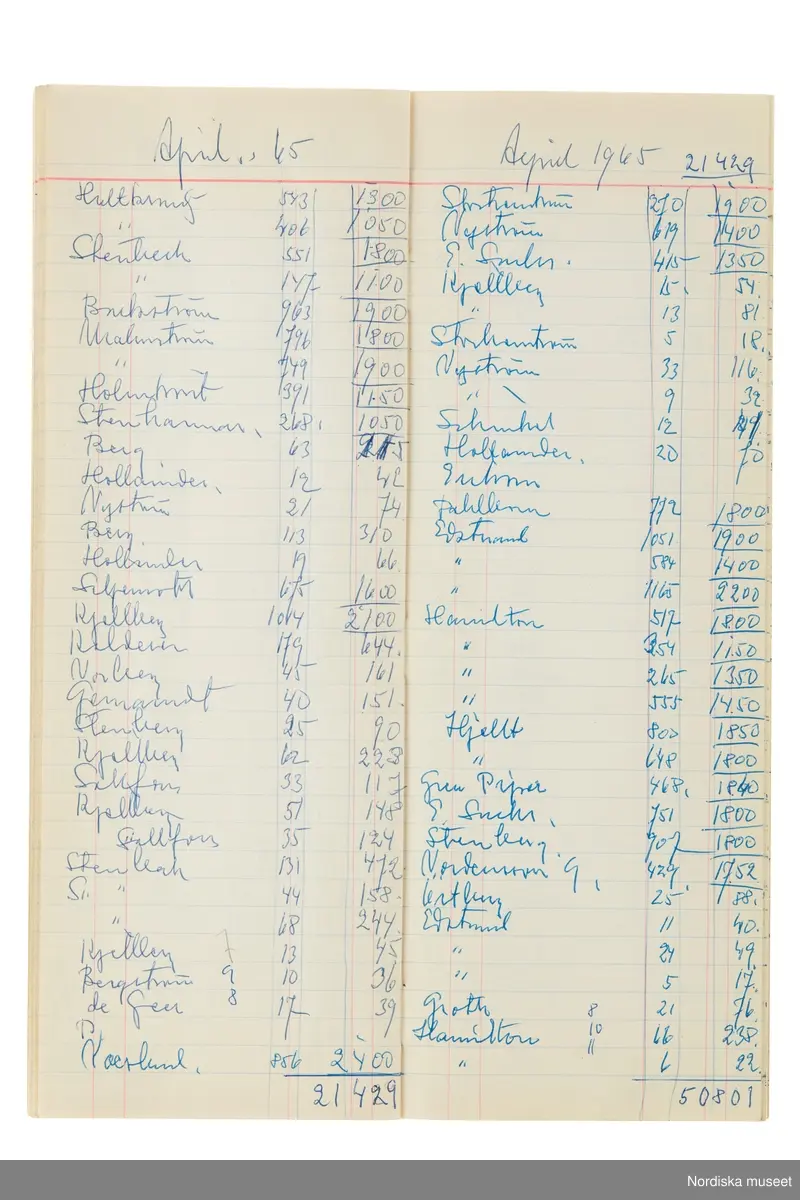 April .. 65
543 1300
" 406 1050
Stenbeck 551 1800
" 147 1100
Backström 963 1900
Malmström 796 1800
" 749 1900
Holmkvist 391 1150
Stenhammar. 268. 1050
Berg 63
Hollander. 12 42
Nyström 21 74
Berg 113 310
Hollander 19 66.
675 1600
Kjellberg 1014 2100
179 644.
45 161
40 151.
Stenberg 25 90
Kjellberg 62 223
Sallfors 33 117
Kjellberg 51 148
Sallfors 35 124
Stenbeck 131 472
S. " 44 158.
" 68 244.
Kjellberg 13 45
Bergström 9 10 36
de Geer 8 17 39
856 2400
21429
April 1965 21429
270 1900
Nyström 619 1400
E. Sachs. 415 1350
Kjellberg 15. 54.
" 13 81
5 18.
Nyström 33 116.
" 9 32
Schinkel 12
Hollander. 20 70
772 1800
Edstrand 1051 1900
" 584 1400
" 1165 2200
Hamilton 517 1800
" 254 1150
" 265 1350
" 555 1450
Hjellt 800 1850
" 648 1800
Piper 468. 1840
E. Sachs. 751 1800
Stenberg 907 1800
Nordenson 9. 429 1752
25 88.
Edstrand 11 40.
" 24 49.
" 5 17.
Groth 8 21 76.
Hamilton 10 66 238.
" 11 6 22.
50801
Nordiska museet